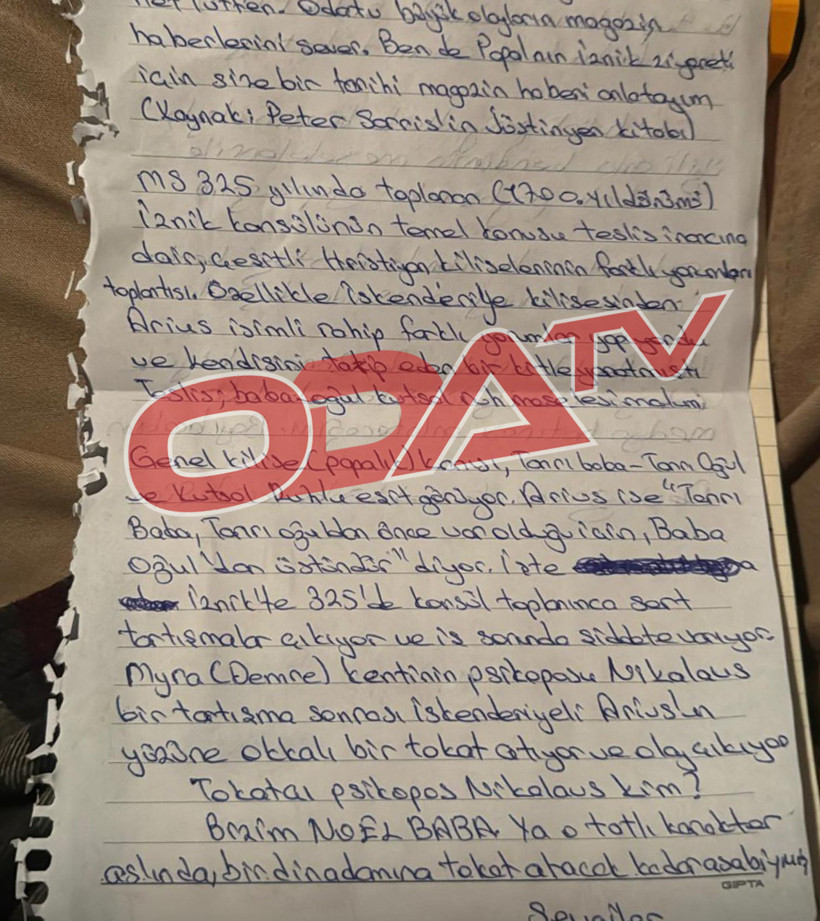 lütfen. Odatv büyük olayların magazin
haberlerini sever. Ben de Papa'nın İznik ziyareti
için size bir tarihi magazin haberi anlatayım
(Kaynak: Peter Sarris'in Jüstinyen kitabı)
MS 325 yılında toplanan (1700. yıldönümü)
İznik konsülünün temel konusu teslis inancına
dair, çeşitli Hristiyan kiliselerinin farklı yorumları
toplantısı. Özellikle İskenderiye kilisesinden
Arius isimli rahip farklı yorumlar yapıyordu
ve kendisini takip eden bir kitle yaratmıştı
Teslis; baba-oğul kutsal ruh meselesi malum
ODATV
Genel kilise (papalık) Tanrı baba-Tanrı Oğul
ve Kutsal Ruhu eşit görüyor. Arius ise "Tanrı
Baba, Tanrı oğuldan önce var olduğu için, Baba
Oğul'dan üstündür" diyor. İşte
İznik'te 325'de konsül toplanınca sert
tartışmalar çıkıyor ve iş sonunda şiddete varıyor.
Myra (Demre) kentinin psikoposu Nikolaus
bir tartışma sonrası İskenderiyeli Arius'un
yüzüne okkalı bir tokat atıyor ve olay çıkıyor
Tokatçı psikopos Nikolaus kim?
Bizim NOEL BABA. Ya o tatlı karakter
aslında, bir din adamına tokat atacak kadar asabiymiş
GIPTA